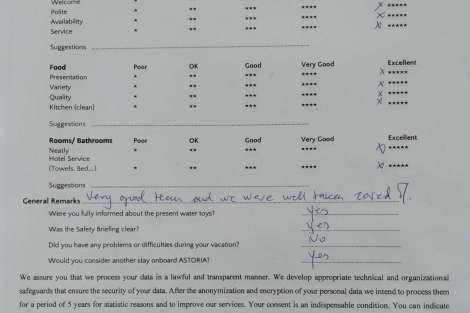 Welcome
Polite * ** *** **** X *****
Availability * ** *** **** X *****
Service * ** *** **** X *****
Suggestions
Food Poor OK Good Very Good Excellent
Presentation * ** *** **** X *****
Variety * ** *** **** X *****
Quality * ** *** **** X *****
Kitchen (clean) * ** *** **** X *****
Suggestions
Rooms/ Bathrooms Poor OK Good Very Good Excellent
Neatly * ** *** **** X *****
Hotel Service
(Towels, Bed...) * ** *** **** X *****
Suggestions
General Remarks Very good team and we were well taken
Were you fully informed about the present water toys? Yes
Was the Safety Briefing clear? Yes
Did you have any problems or difficulties during your vacation? No
Would you consider another stay onboard ASTORIA? Yes
We assure you that we process your data in a lawful and transparent manner. We develop appropriate technical and organizational
safeguards that ensure the security of your data. After the anonymization and encryption of your personal data we intend to process them
for a period of 5 years for statistic reasons and to improve our services. Your consent is an indispensable condition. You can indicate